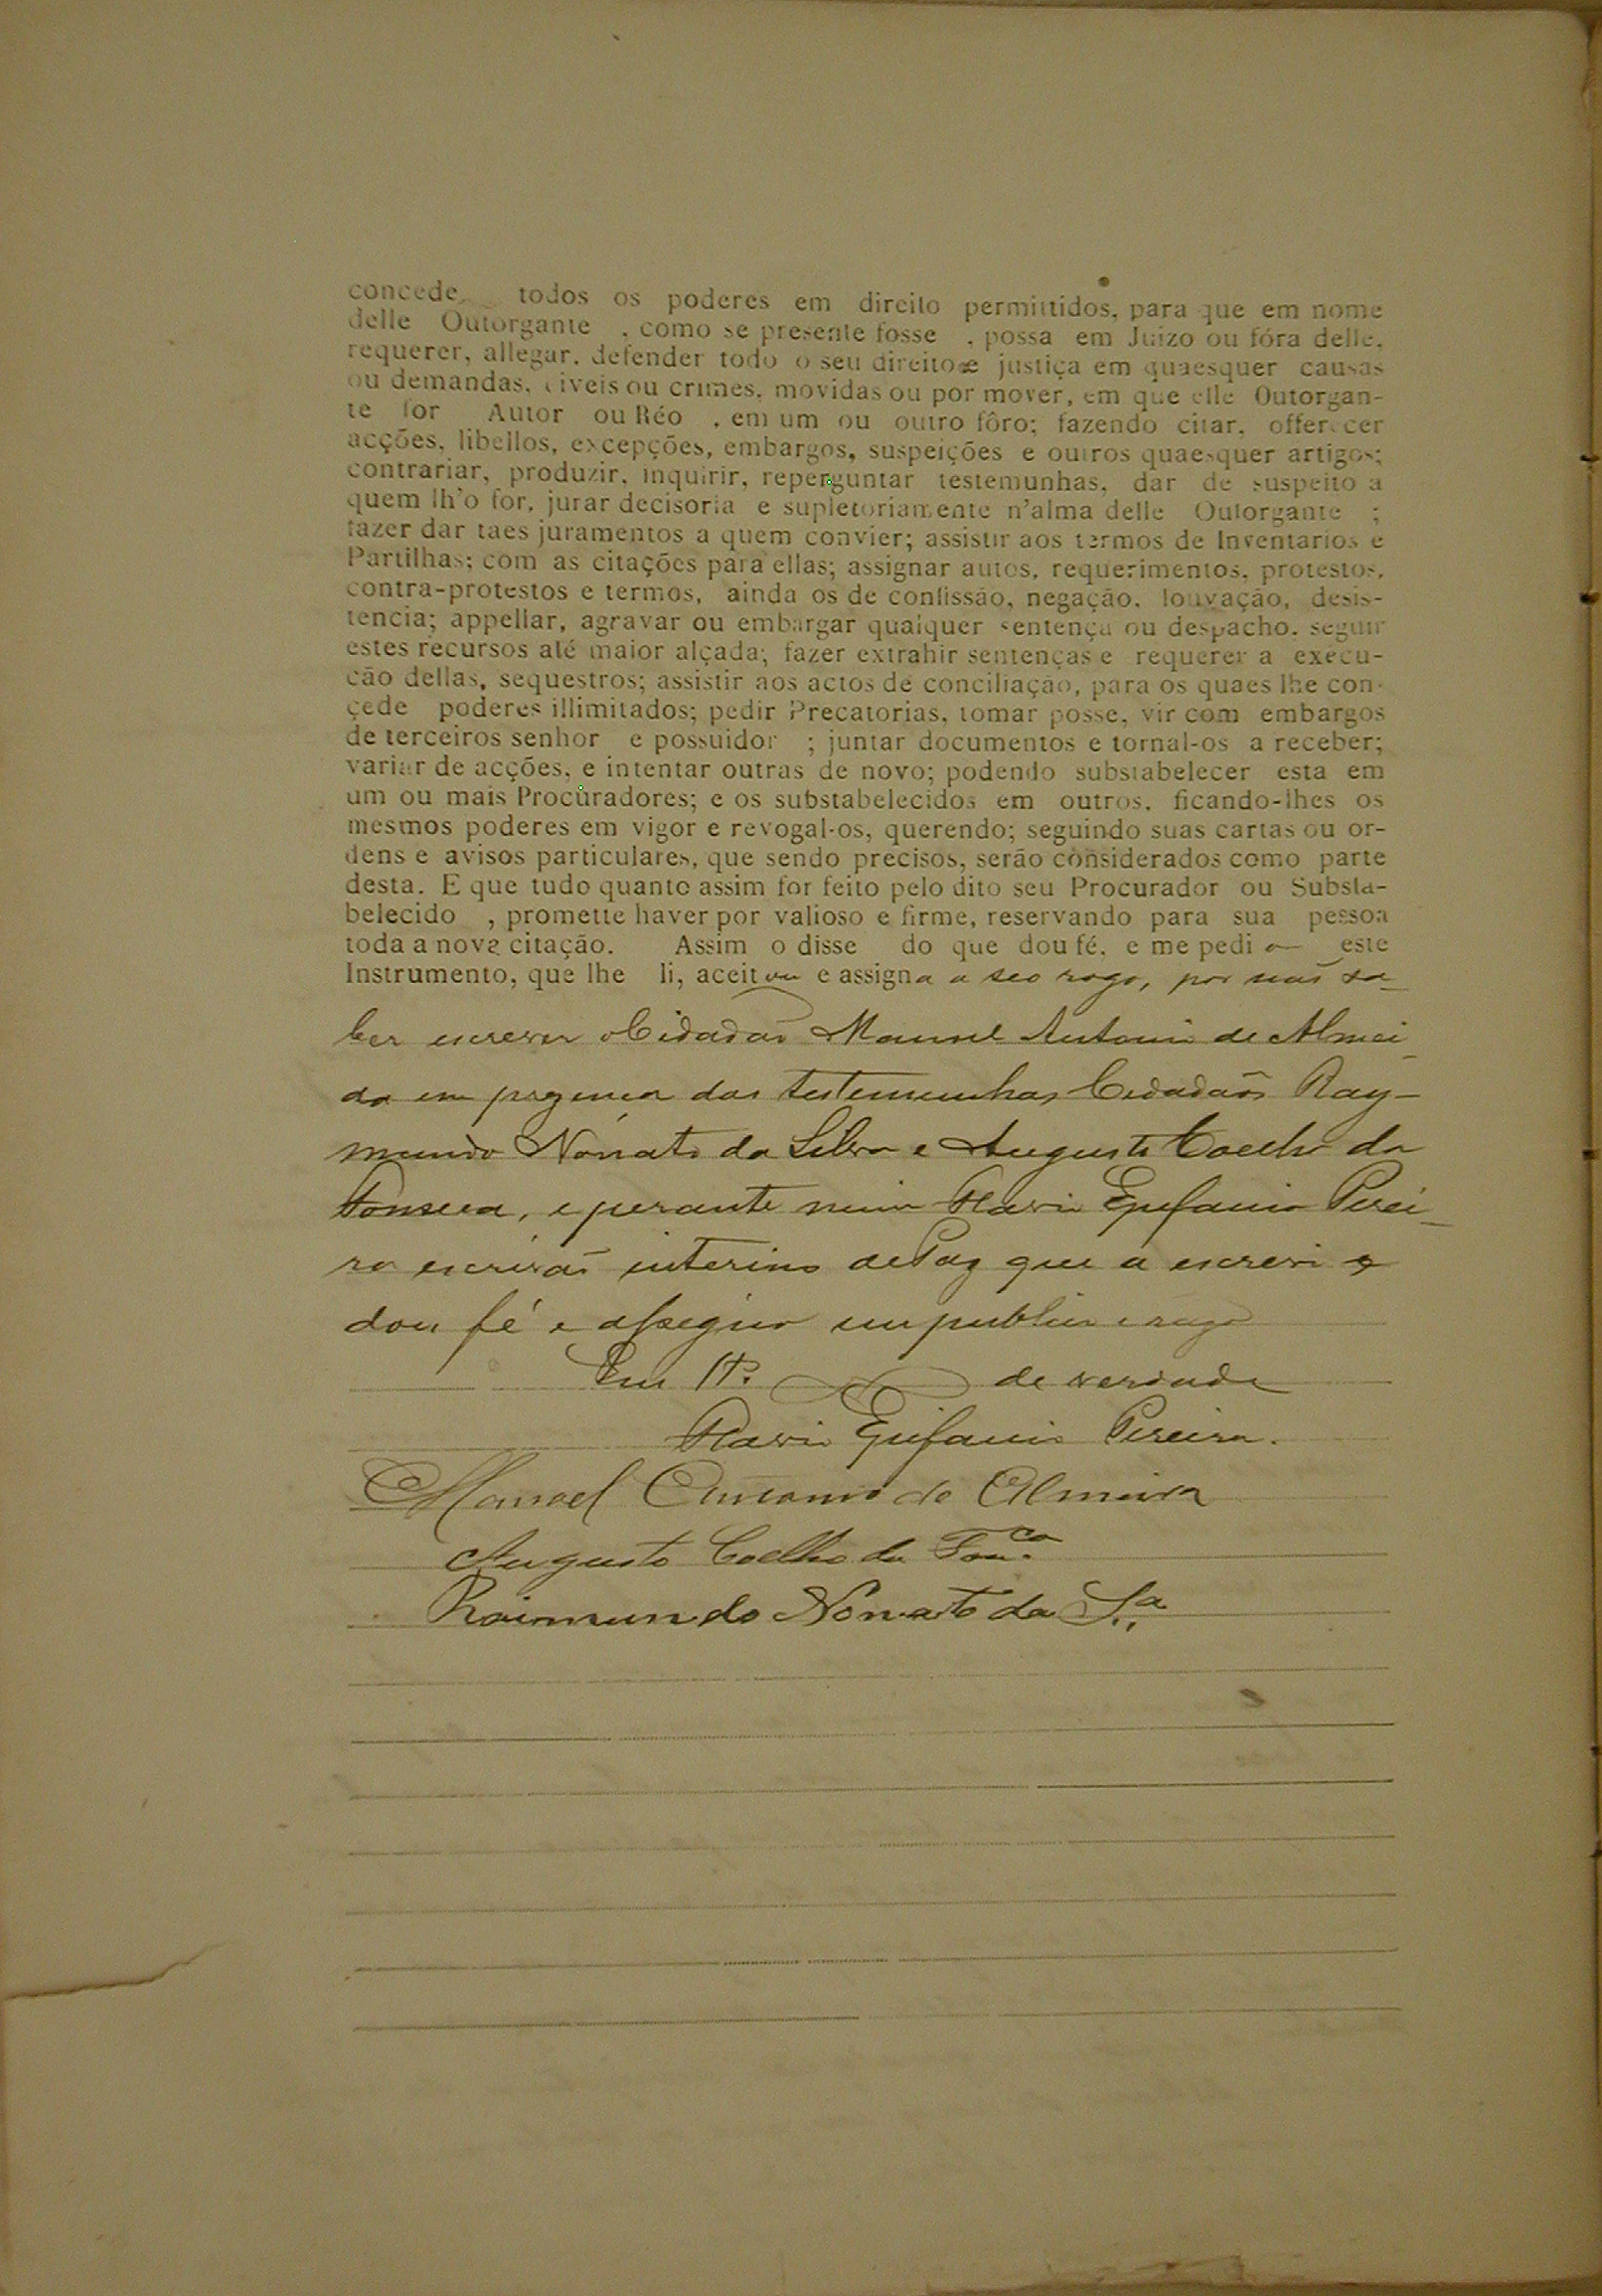 concede todos os poderes em direito permittidos, para que em nome
delle Outorgante , como se presente fosse , possa em Juizo ou fóra delle,
requerer, allegar, defender todo o seu direito e justiça em quaesquer causas
ou demandas, civeis ou crimes, movidas ou por mover, em que elle Outorgan-
te for Autor ou Réo , em um ou outro fôro; fazendo citar, offerecer
acções, libellos, excepções, embargos, suspeições e outros quaesquer artigos;
contrariar, produzir, inquirir, reperguntar testemunhas, dar de suspeito a
quem lh'o for, jurar decisoria e supletoriamente n'alma delle Outorgante ;
fazer dar taes juramentos a quem convier; assistir aos termos de Inventarios e
Partilhas; com as citações para ellas; assignar autos, requerimentos, protestos,
contra-protestos e termos, ainda os de confissão, negação, louvação, desis-
tencia; appellar, agravar ou embargar qualquer sentença ou despacho, seguir
estes recursos até maior alçada; fazer extrahir sentenças e requerer a execu-
ção dellas, sequestros; assistir aos actos de conciliação, para os quaes lhe con-
cede poderes illimitados; pedir Precatorias, tomar posse, vir com embargos
de terceiros senhor e possuidor ; juntar documentos e tornal-os a receber;
variar de acções, e intentar outras de novo; podendo substabelecer esta em
um ou mais Procuradores; e os substabelecidos em outros, ficando-lhes os
mesmos poderes em vigor e revogal-os, querendo; seguindo suas cartas ou or-
dens e avisos particulares, que sendo precisos, serão considerados como parte
desta. E que tudo quanto assim for feito pelo dito seu Procurador ou Substa-
belecido , promette haver por valioso e firme, reservando para sua pessoa
toda a nova citação. Assim o disse do que dou fé, e me pedio este
Instrumento, que lhe li, aceitou e assigna a seo rogo, por não sa-
ber escrever o Cidadão Manoel Antonio de Almei
da em prezença das testemunhas Cidadãos Ray-
mundo Nonato da Silva e Augusto Coelho da
Fonseca, e perante mim Flavio Epifanio Perei-
ra escrivão interino de Paz que a escrevi e
dou fé e assigno em publico e raso
Em de verdade
Flavio Epifanio Pereira.
Manoel Antonio de Almeida
Augusto Coelho da Fonc.ca
Raimundo Nonato da S.a